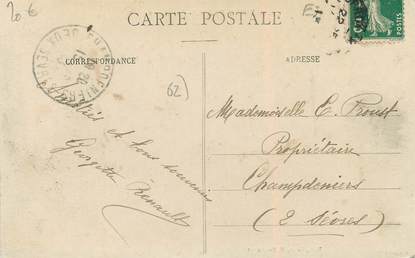 20 €
CARTE POSTALE
CORRESPONDANCE
ADRESSE
CHAMPDENIERS
DEUX-SÈVRES
62
Amitiés
et bons souvenirs
Georgette Renault
Mademoiselle E. Proust
Propriétaire
Champdeniers
(2 Sèvres)